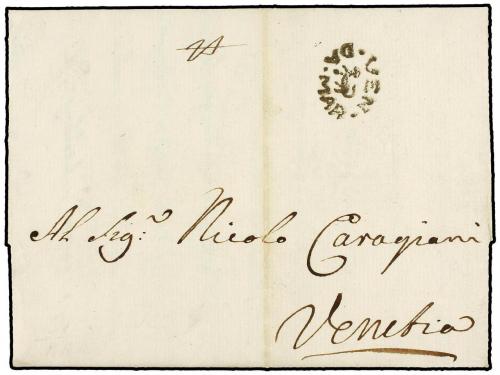 DA. MAR. VEN.
Al Sig.r Nicolo Caragiani
Venetia